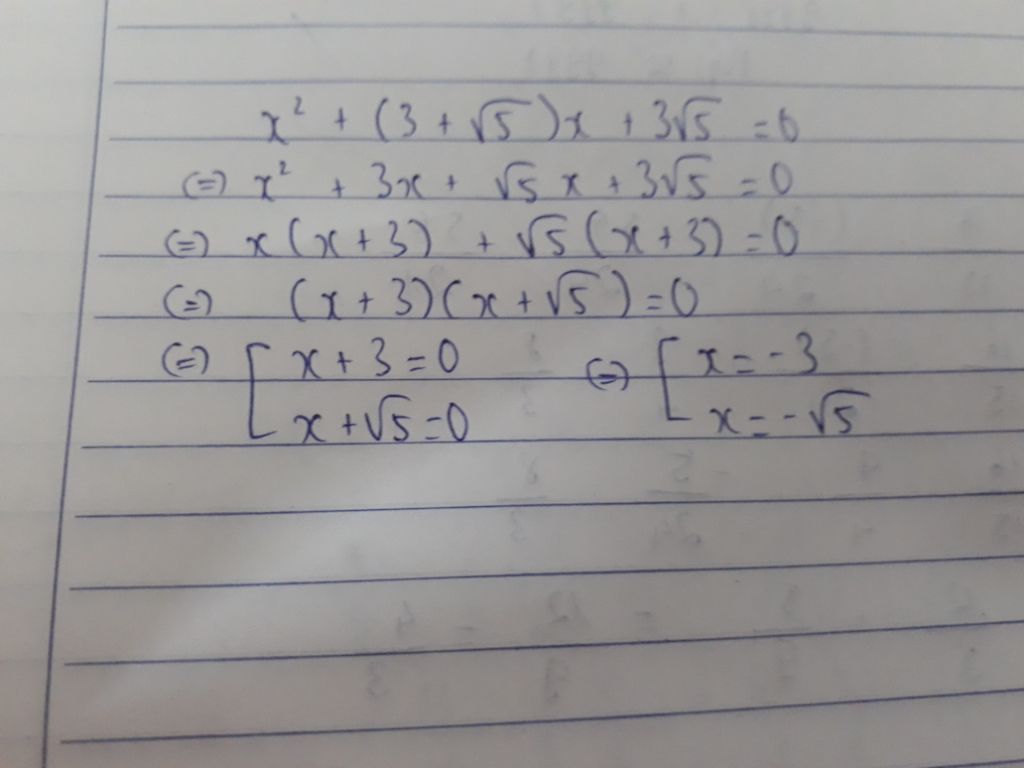 x² + (3 + √5)x + 3√5 = 0
(=) x² + 3x + √5 x + 3√5 = 0
(=) x(x + 3) + √5(x + 3) = 0
(=) (x + 3)(x + √5) = 0
(=) [ x + 3 = 0 (=) [ x = -3
x + √5 = 0 x = -√5